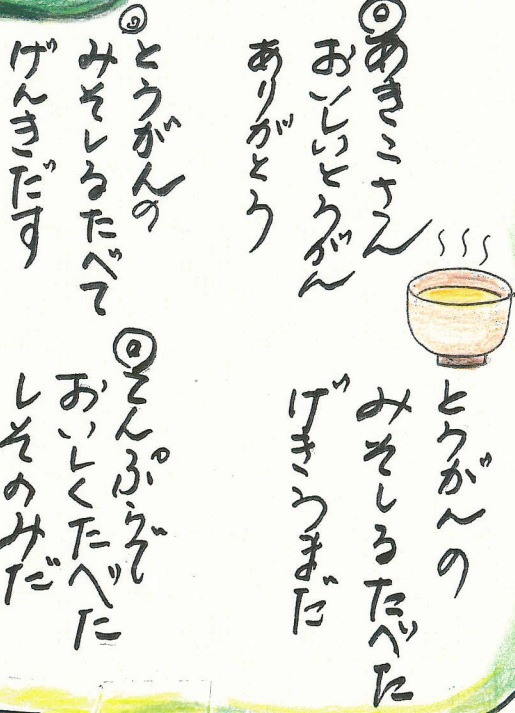 ◎あきこさん
おいしいとうがん
ありがとう
とうがんの
みそしるたべた
げきうまだ
◎とうがんの
みそしるたべて
げんきだす
◎てんぷらでし
おいしくたべた
しそのみだ